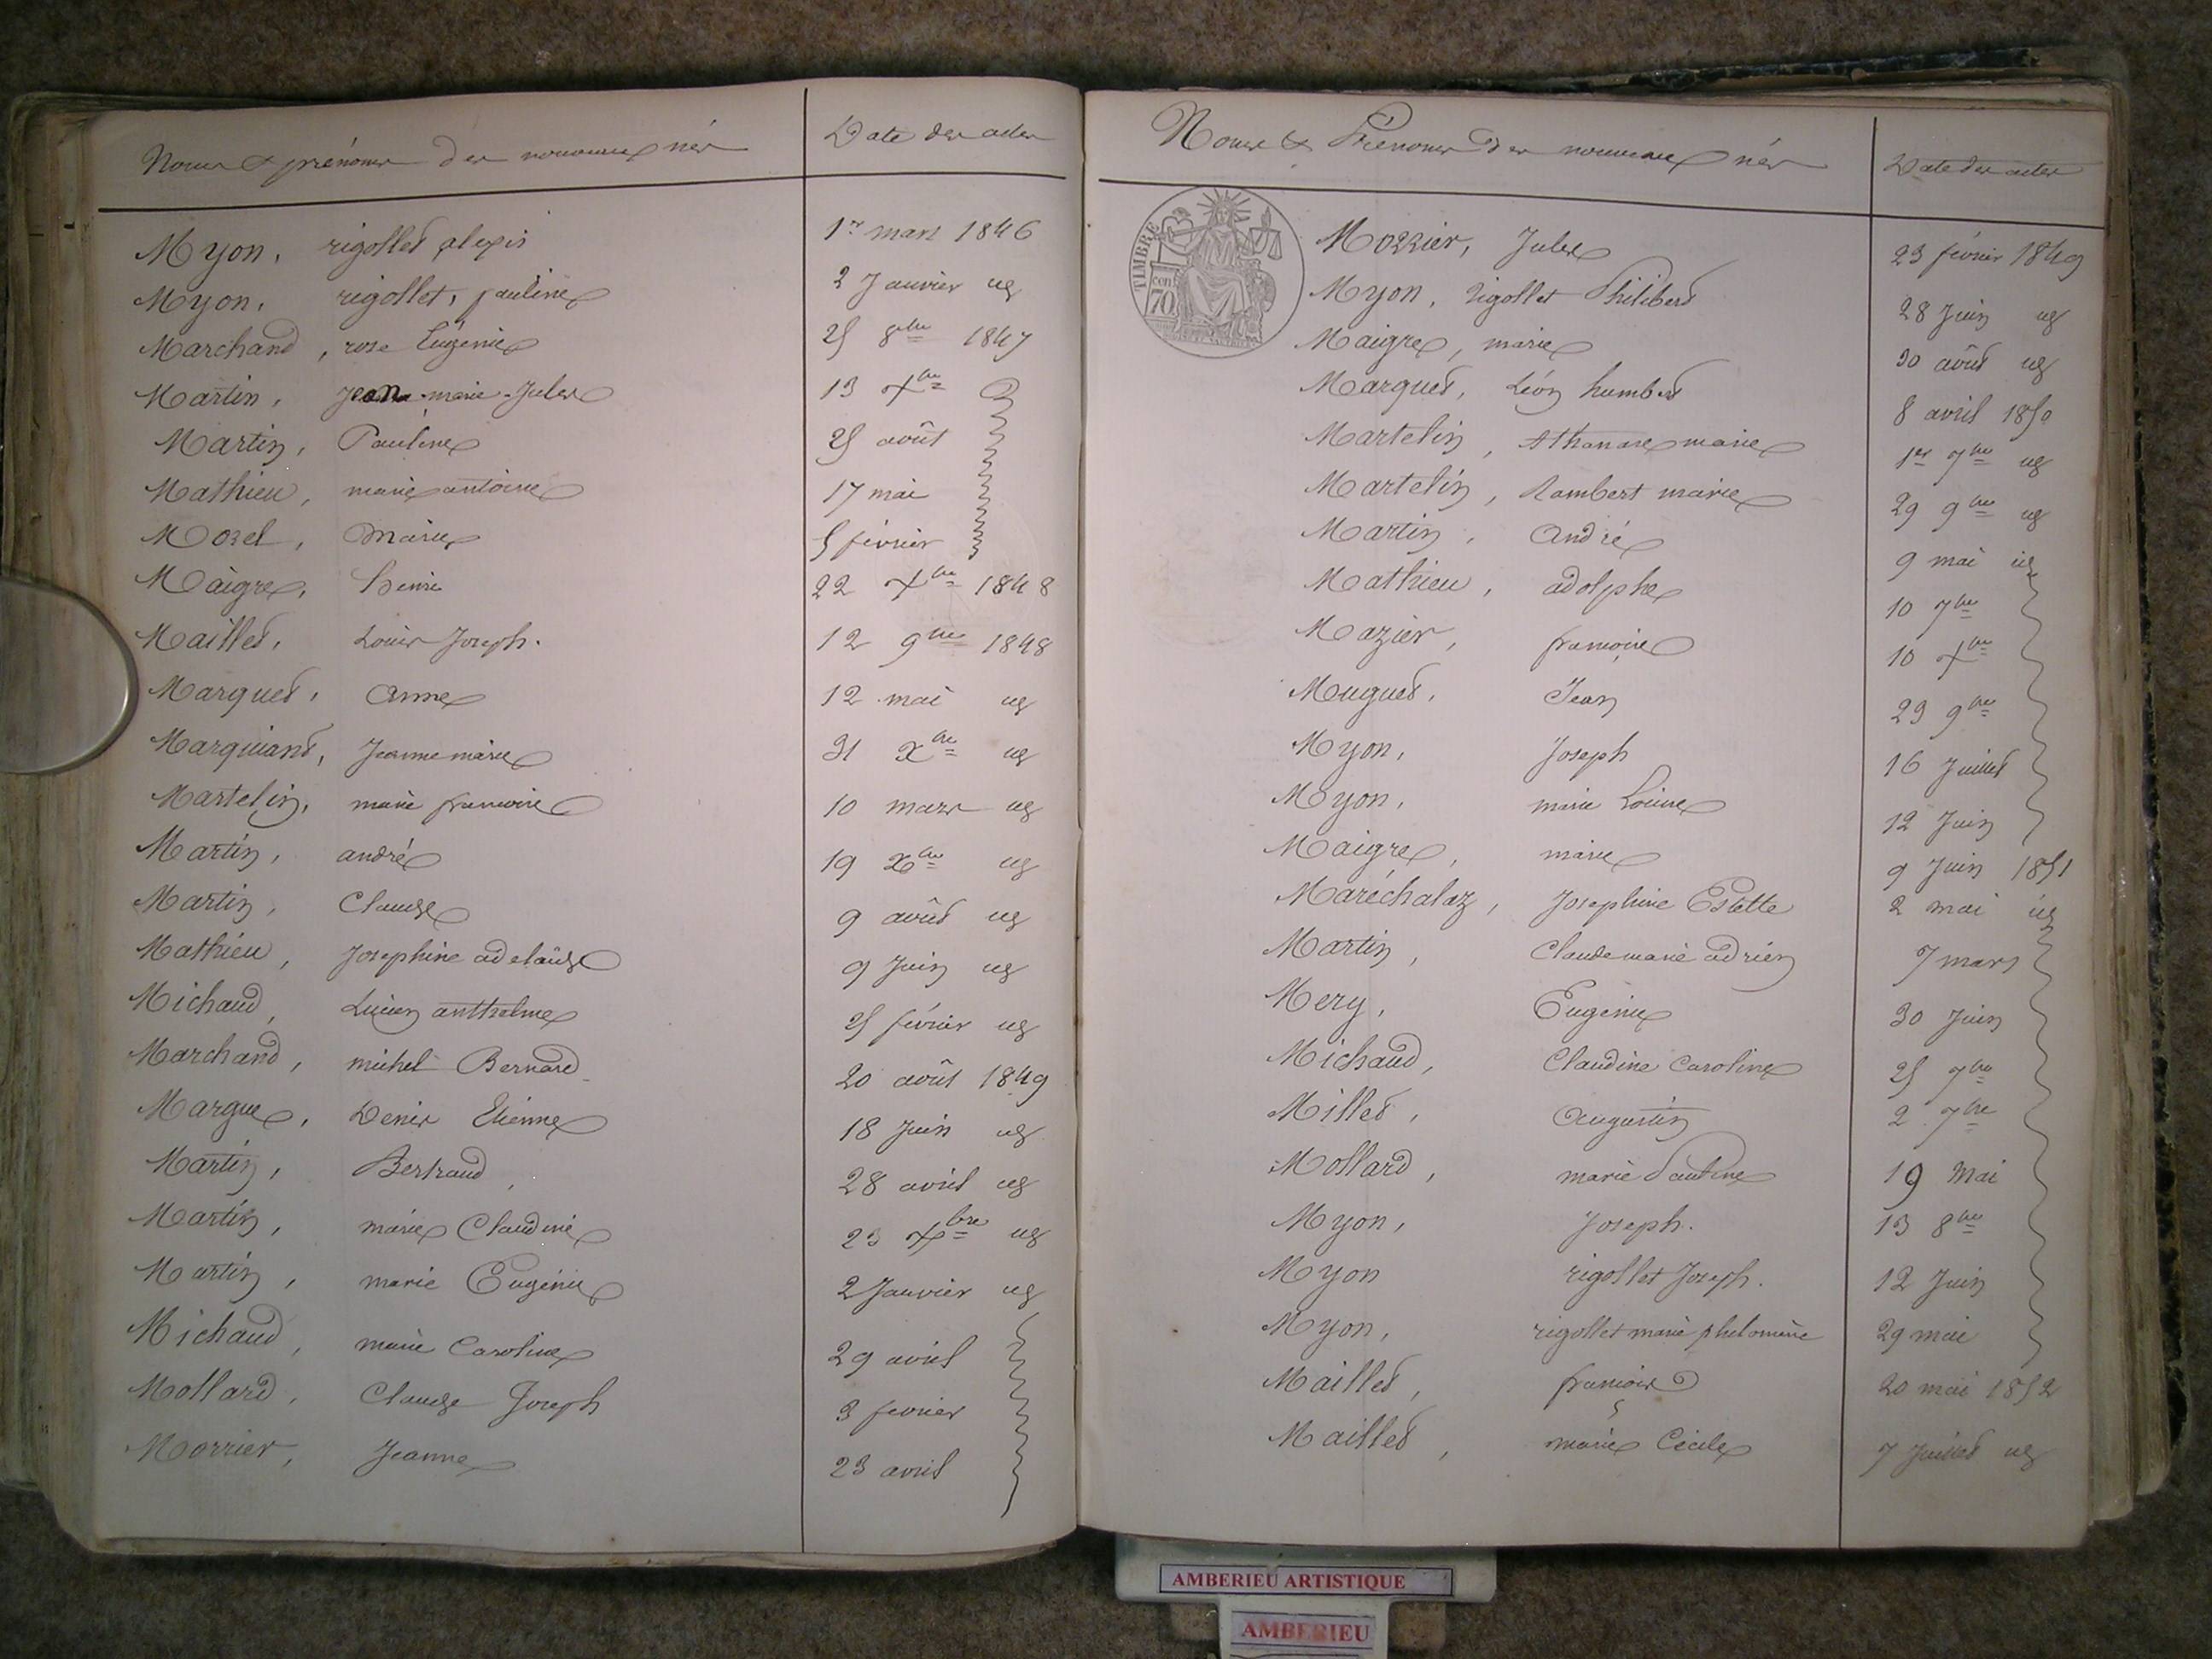 Noms & prénoms des nouveaux nés Date des actes
Myon, rigollet alexis 1er mars 1846
Myon, rigollet, pauline 2 Janvier id
Marchand, rose Eugénie 25 8bre 1847
Martin, Jean-marie-Jules 13 Xbre
Martin, Pauline 25 août
Mathieu, marie antoine 17 mai
Morel, Marie 5 février
Maigre, henri 22 Xbre 1848
Maillet, Louis Joseph. 12 9bre 1848
Marquet, Anne 12 mai id
Marquiand, Jeanne marie 31 Xbre id
Martelin, marie francoise 10 mars id
Martin, andré 19 Xbre id
Martin, Claude 9 août id
Mathieu, Josephine adelaïde 9 Juin id
Michaud, Lucien anthelme 25 février id
Marchand, michel Bernard 20 août 1849
Margue, Denis Etienne 18 Juin id
Martin, Bertrand, 28 avril id
Martin, marie Claudine 23 Xbre id
Martin, marie Eugénie 2 Janvier id
Michaud, marie Caroline 29 avril
Mollard, Claude Joseph 3 fevrier
Morrier, Jeanne 23 avril
Noms & Prénoms des nouveaux nés Date des actes
TIMBRE
70
Morrier, Jules 23 février 1849
Myon, rigollet Philibert 28 Juin id
Maigre, marie 30 août id
Marquet, Léon humbert 8 avril 1850
Martelin, Athanase marie 1er 7bre id
Martelin, Rambert marie 29 9bre id
Martin, André 9 mai id
Mathieu, adolphe 10 7bre
Mazier, francoise 10 Xbre
Muguet, Jean 23 9bre
Myon, Joseph 16 Juillet
Myon, marie Louise 12 Juin
Maigre, marie 9 Juin 1851
Maréchalaz, Josephine Estette 2 mai id
Martin, Claude marie adrien 7 mars
Mery, Eugénie 30 Juin
Michaud, Claudine Caroline 25 7bre
Millet, Augustin 2 7bre
Mollard, marie Pauline 19 Mai
Myon, Joseph. 13 8bre
Myon rigollet Joseph. 12 Juin
Myon, rigollet marie philomène 29 mai
Maillet, francois 20 mai 1852
Maillet, marie Cécile 7 Juillet id
AMBERIEU ARTISTIQUE
AMBERIEU